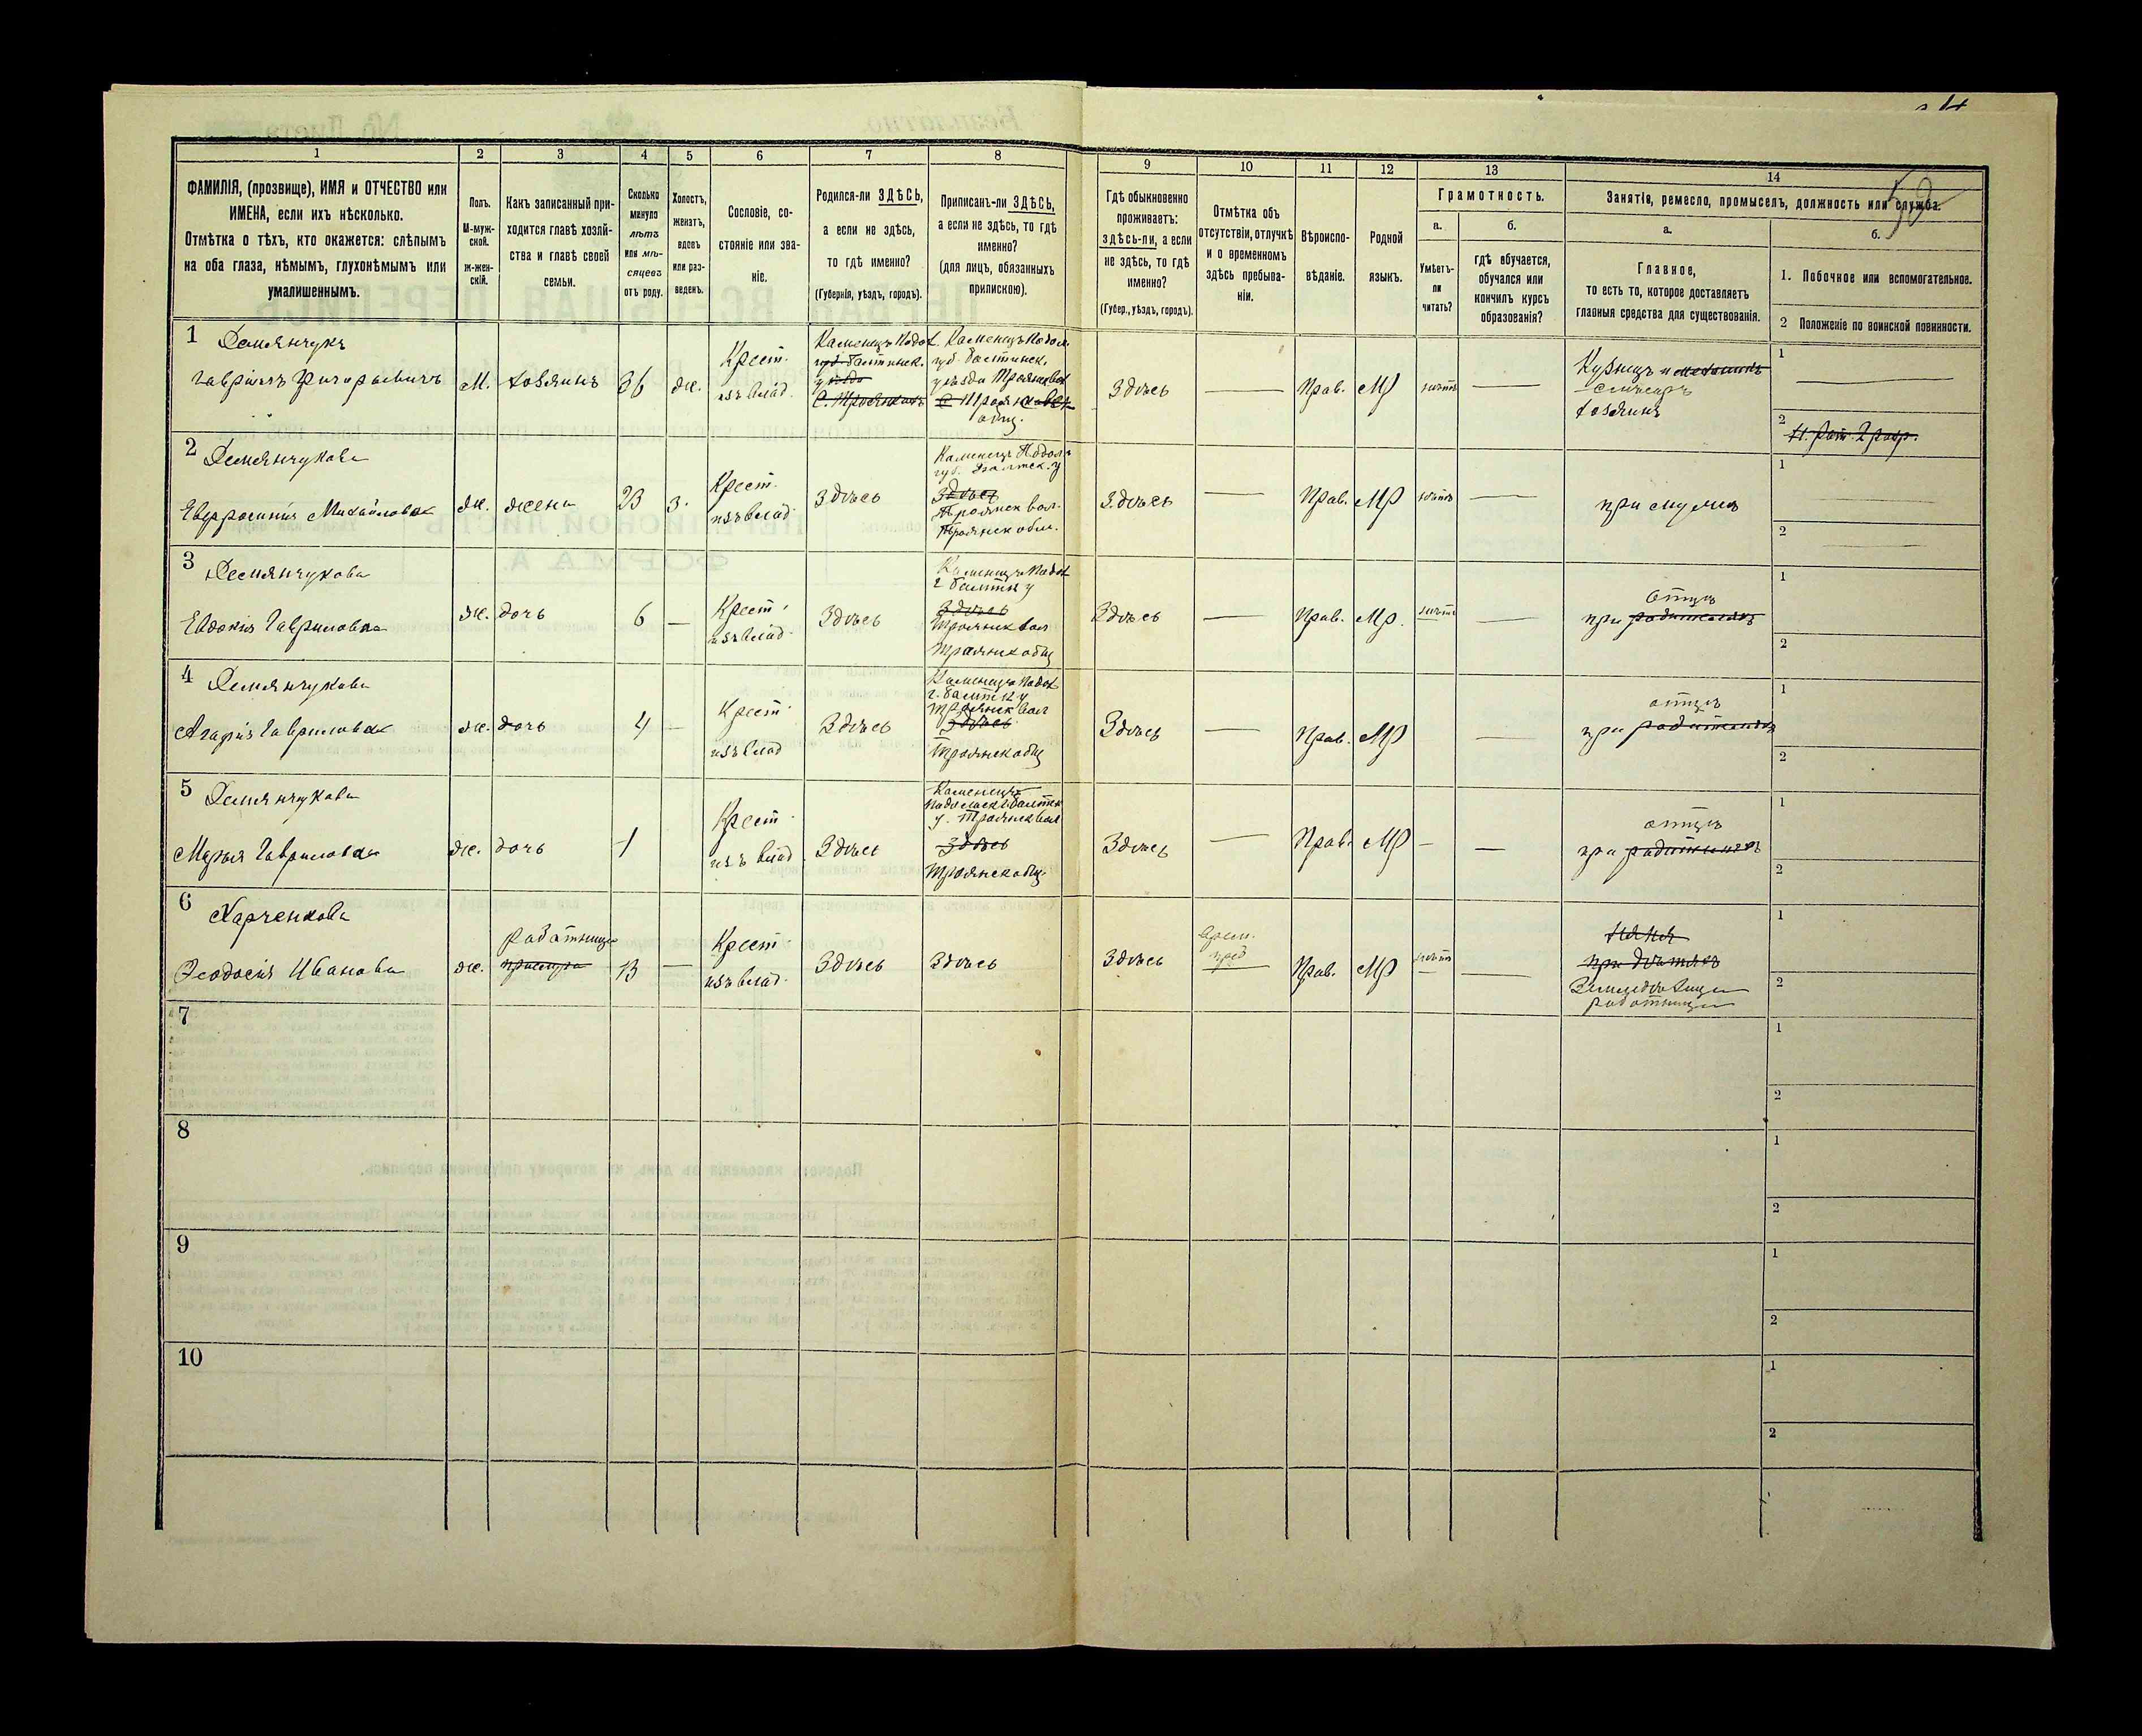 1
2
3
4
5
6
7
8
9
10
11
12
13
14
ФАМИЛІЯ, (прозвище), ИМЯ и ОТЧЕСТВО или
ИМЕНА, если ихъ нѣсколько.
Отмѣтка о тѣхъ, кто окажется: слѣпымъ
на оба глаза, нѣмымъ, глухонѣмымъ или
умалишеннымъ.
Полъ.
М-муж-
ской.
ж-жен-
скій.
Какъ записанный при-
ходится главѣ хозяй-
ства и главѣ своей
семьи.
Сколько
минуло
лѣтъ
или мѣ-
сяцевъ
отъ роду.
Холостъ,
женатъ,
вдовъ
или раз-
веденъ.
Сословіе, со-
стояніе или зва-
ніе.
Родился-ли ЗДѢСЬ,
а если не здѣсь,
то гдѣ именно?
(Губернія, уѣздъ, городъ).
Приписанъ-ли ЗДѢСЬ,
а если не здѣсь, то гдѣ
именно?
(для лицъ, обязанныхъ
припискою).
Гдѣ обыкновенно
проживаетъ:
здѣсь-ли, а если
не здѣсь, то гдѣ
именно?
(Губер., уѣздъ, городъ).
Отмѣтка объ
отсутствіи, отлучкѣ
и о временномъ
здѣсь пребыва-
ніи.
Вѣроиспо-
вѣданіе.
Родной
языкъ.
Грамотность.
а.
Умѣетъ-
ли
читать?
б.
гдѣ обучается,
обучался или
кончилъ курсъ
образованія?
Занятія, ремесло, промыселъ, должность или служба.
а.
Главное,
то есть то, которое доставляетъ
главныя средства для существованія.
б.
1. Побочное или вспомогательное.
2 Положеніе по воинской повинности.
1
Демянчукъ
Гавріилъ Григорьевичъ
М.
хозяинъ
36
ж.
Крест.
изъ влад.
Каменецъ Подол.
губ. Балтинск.
уѣзда
С. Трояны
Каменецъ Подол.
губ. Балтинск.
уѣзда Троянской
общ.
Здѣсь
Прав.
МР
нѣтъ
Кузнецъ и
слесарь
хозяинъ
1
2
2 разр.
2
Демянчукова
Евфросинія Михайловна
ж.
жена
23
з.
Крест.
изъ влад.
Здѣсь
Каменецъ Подол.
губ. Балтск. у
Здѣсь
Троянск вол.
Троянск общ.
Здѣсь
Прав.
МР
нѣтъ
при мужѣ
1
2
3
Демянчукова
Евдокія Гавриловна
ж.
дочь
6
Крест.
изъ влад.
Здѣсь
Каменецъ Подол
г Балтск у
Здѣсь
Троянск вол
Троянск общ
Здѣсь
Прав.
МР.
нѣтъ
отцѣ
при родителяхъ
1
2
4
Демянчукова
Агафія Гавриловна
ж.
дочь
4
Крест.
изъ влад
Здѣсь
Каменецъ Подол
г. Балтск у
Троянск вол
Здѣсь
Троянск общ
Здѣсь
Прав.
МР
отцѣ
при родителяхъ
1
2
5
Демянчукова
Марья Гавриловна
ж.
дочь
1
Крест.
изъ влад.
Здѣсь
Каменецъ
Подольск г Балтск
у. Троянск вол
Здѣсь
Троянск общ.
Здѣсь
Прав.
МР
отцѣ
при родителяхъ
1
2
6
Харченкова
Ѳеодосія Иванова
ж.
работница
прислуга
13
Крест.
изъ влад.
Здѣсь
Здѣсь
Здѣсь
врем.
преб
Прав.
МР
нѣтъ
няня
при дѣтяхъ
работница
1
2
7
1
2
8
1
2
9
1
2
10
1
2